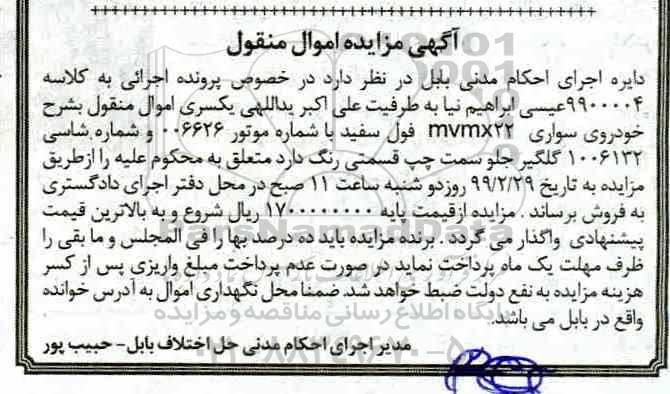 آگهی مزایده اموال منقول
دایره اجرای احکام مدنی بابل در نظر دارد در خصوص پرونده اجرائی به کلاسه
۹۹۰۰۰۰۴عیسی ابراهیم نیا به طرفیت علی اکبر یداللهی یکسری اموال منقول بشرح
خودروی سواری mvmx۲۲ فول سفید با شماره موتور ۰۰۶۶۲۶ و شماره شاسی
۱۰۰۶۱۳۲ گلگیر جلو سمت چپ قسمتی رنگ دارد متعلق به محکوم علیه را ازطریق
مزایده به تاریخ ۹۹/۲/۲۹ روزدو شنبه ساعت ۱۱ صبح در محل دفتر اجرای دادگستری
به فروش برساند . مزایده ازقیمت پایه ۱۷۰۰۰۰۰۰۰۰ ریال شروع و به بالاترین قیمت
پیشنهادی واگذار می گردد . برنده مزایده باید ده درصد بها را فی المجلس و ما بقی را
ظرف مهلت یک ماه پرداخت نماید در صورت عدم پرداخت مبلغ واریزی پس از کسر
هزینه مزایده به نفع دولت ضبط خواهد شد. ضمنا محل نگهداری اموال به آدرس خوانده
واقع در بابل می باشد.
مدیر اجرای احکام مدنی حل اختلاف بابل- حبیب پور
ParsNamadData
پایگاه اطلاع رسانی مناقصه و مزایده